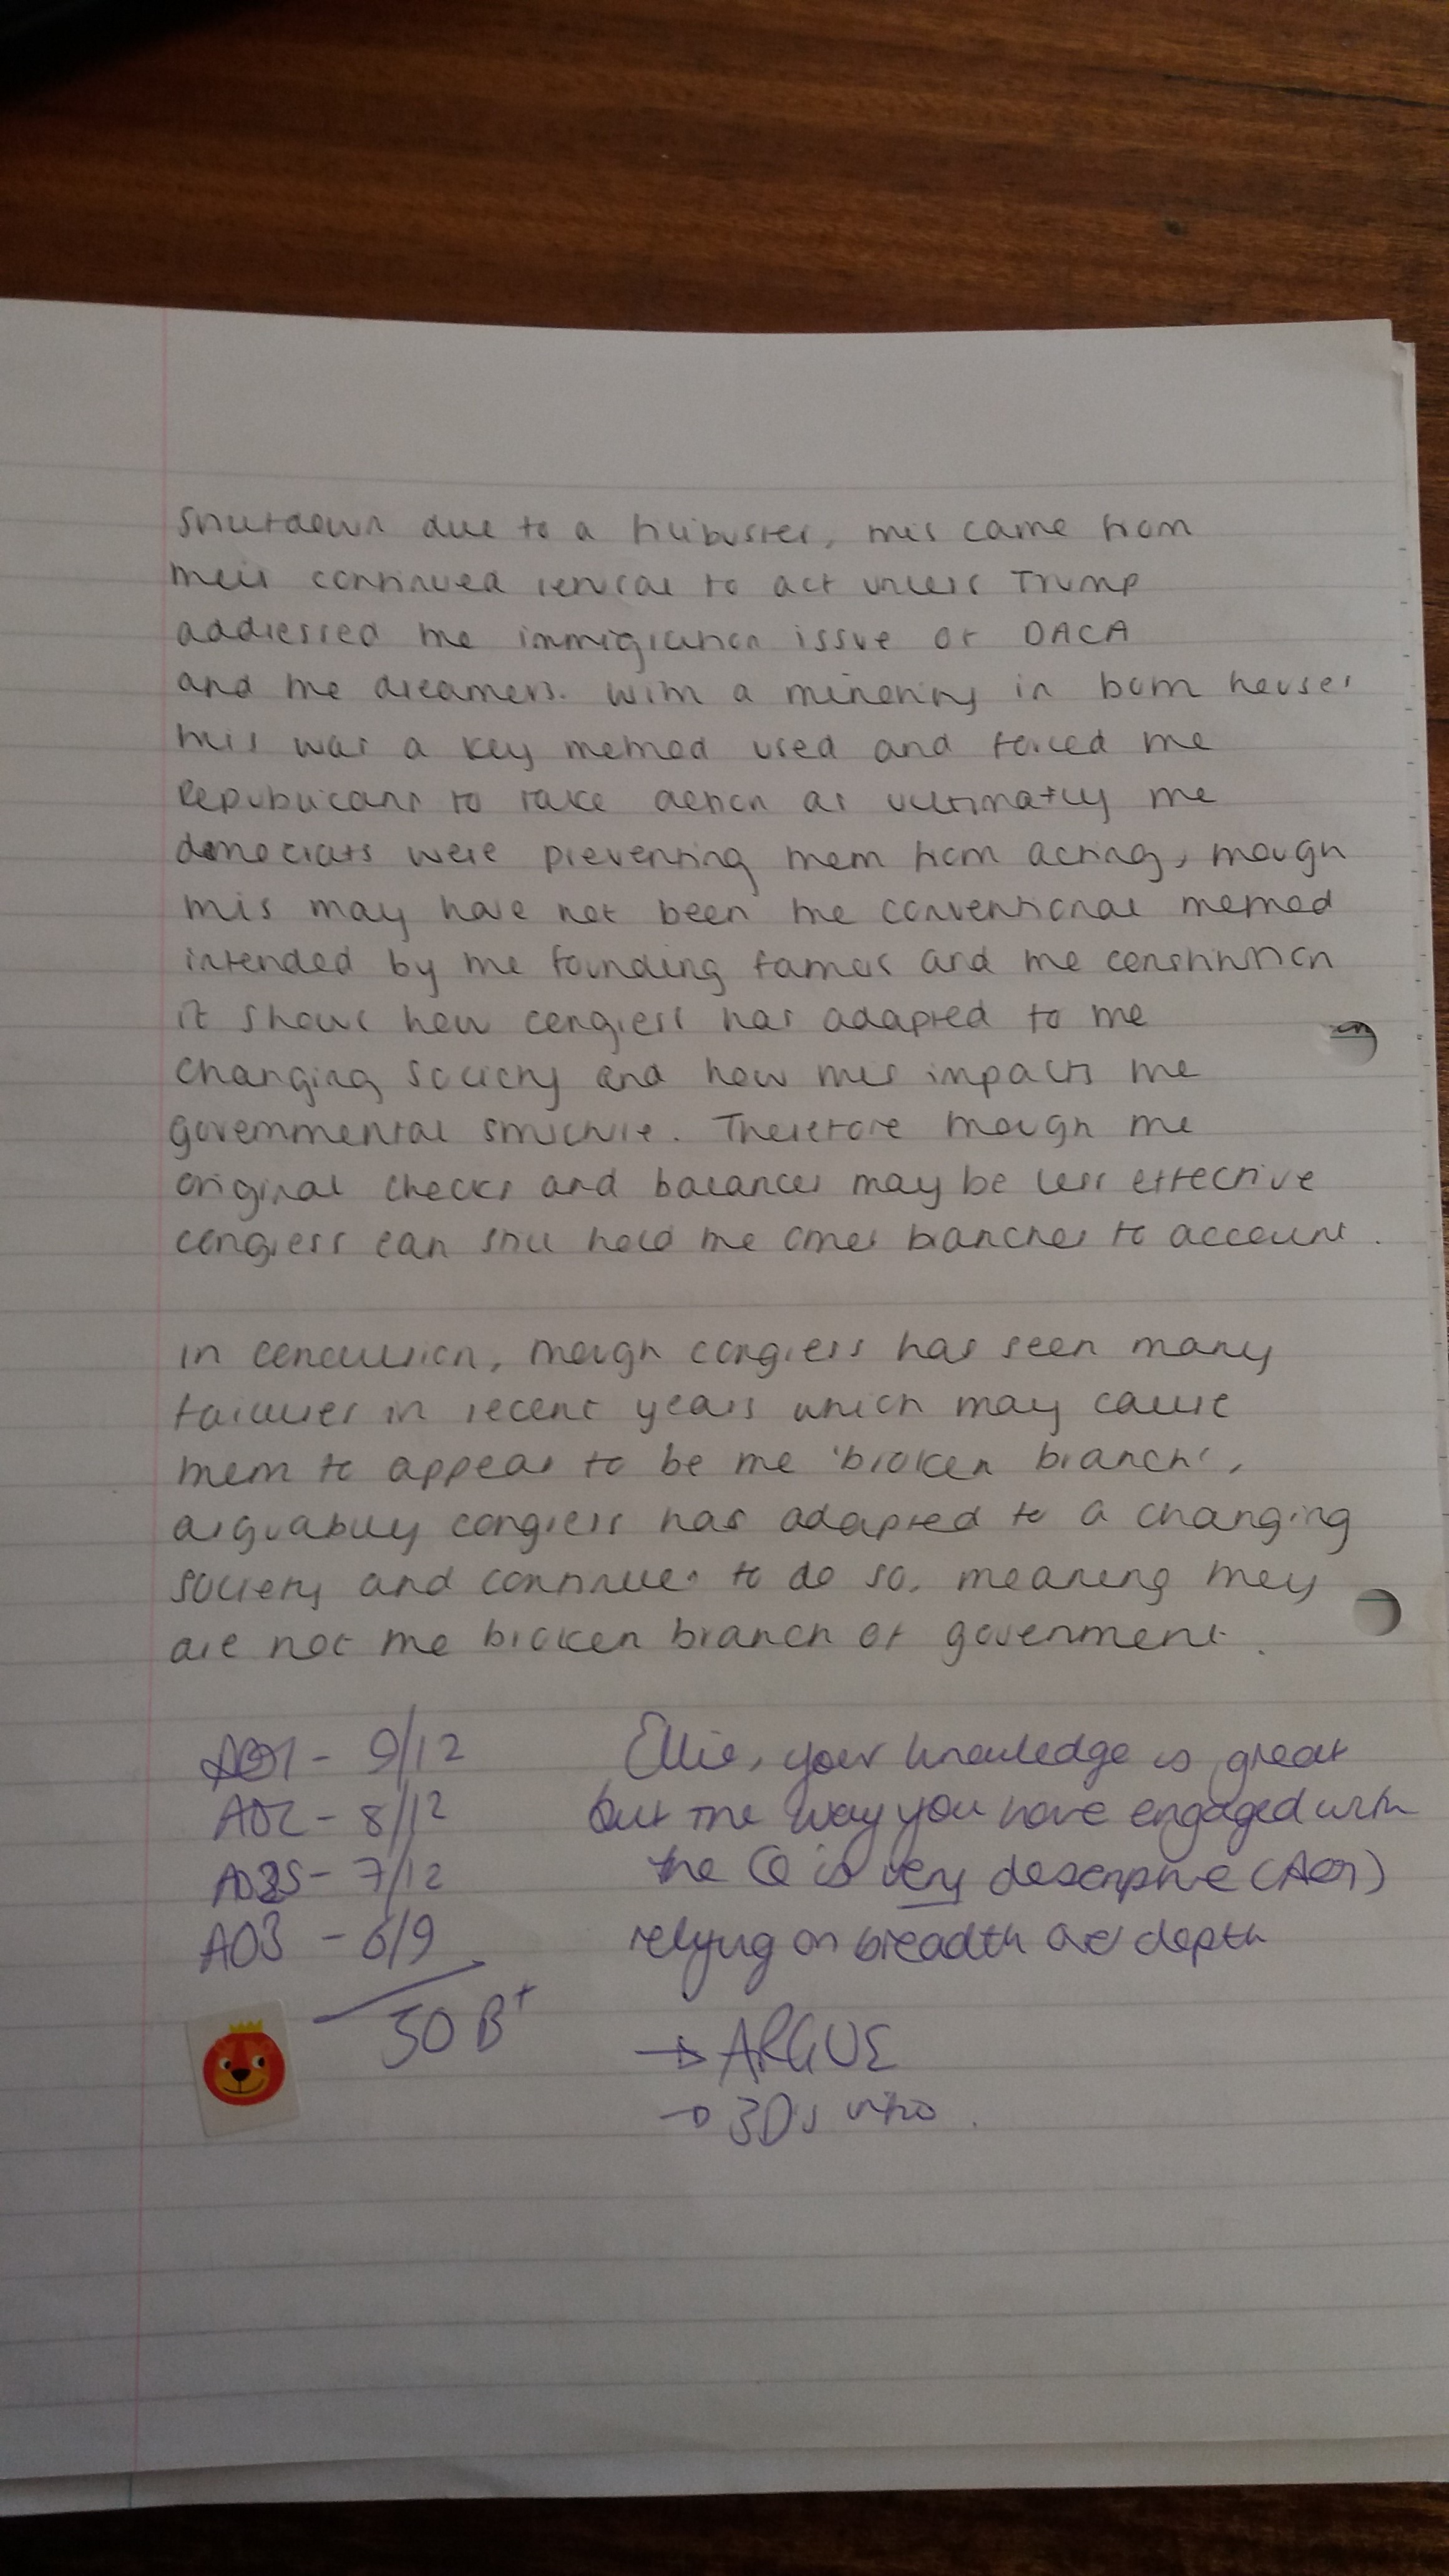 shutdown due to a filibuster, this came from
their continued refusal to act unless Trump
addressed the immigration issue of DACA
and the dreamers. With a minority in both houses
this was a key method used and forced the
Republicans to take action as ultimatly the
democrats were preventing them from acting, though
this may have not been the conventional method
intended by the founding fathers and the constitution
it shows how congress has adapted to the
changing society and how this impacts the
governmental structure. Therefore though the
original checks and balances may be less effective
congress can still hold the other branches to account.
In conclusion, though congress has seen many
failures in recent years which may cause
them to appear to be the 'broken branch',
arguably congress has adapted to a changing
society and continues to do so, meaning they
are not the broken branch of government.
AO1 - 9/12
AO2 - 8/12
AO2S - 7/12
AO3 - 6/9
30 B+
Ellie, your knowledge is great
but the way you have engaged with
the Q is very descriptive (AO1)
relying on breadth over depth
→ ARGUE
→ 3D's intro.